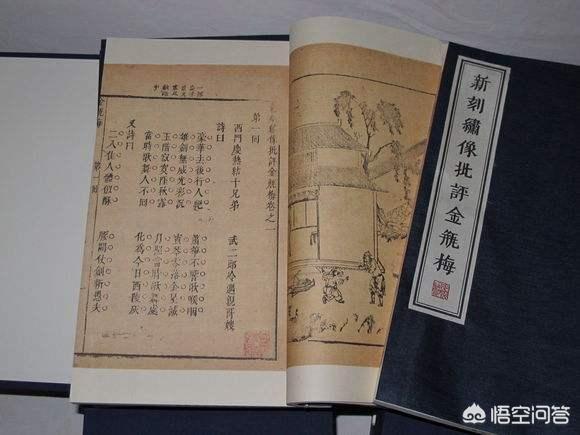 新刻繡像批評金瓶梅
繡像批評金瓶梅卷之一
第一回
西門慶熱結十兄弟　武二郎冷遇親哥嫂
詩曰
豪華去後行人絕　簫箏不響歌喉咽
雄劍無威光彩沉　寶琴零落金星滅
玉階寂寞墜秋露　月照當時歌舞處
當時歌舞人不回　化為今日西陵灰
又詩曰
二八佳人體似酥　腰間仗劍斬愚夫
金瓶梅　第一回
悟空问答